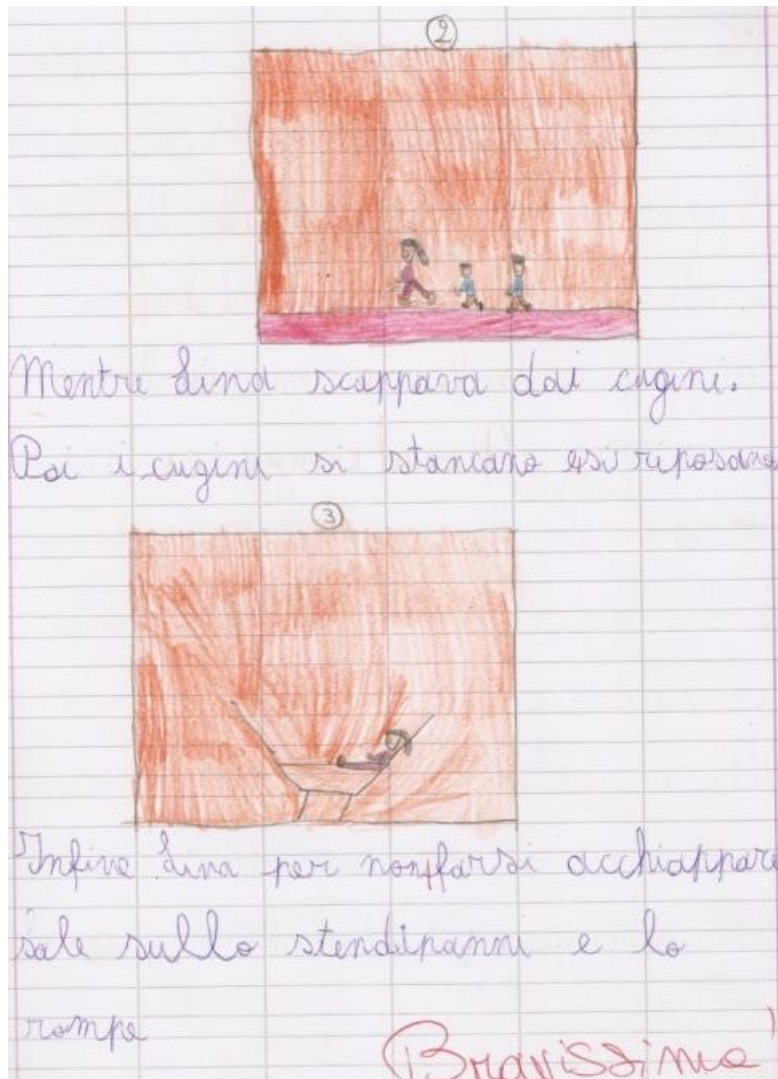 2
Mentre Lina scappava dai cugini.
Poi i cugini si stancano e si riposano
3
Infine Lina per non farsi acchiappare
sale sullo stendipanni e lo
rompe
Bravissima!